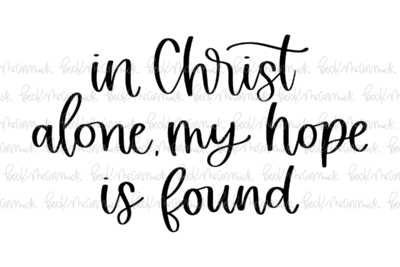 in Christ
alone, my hope
is found